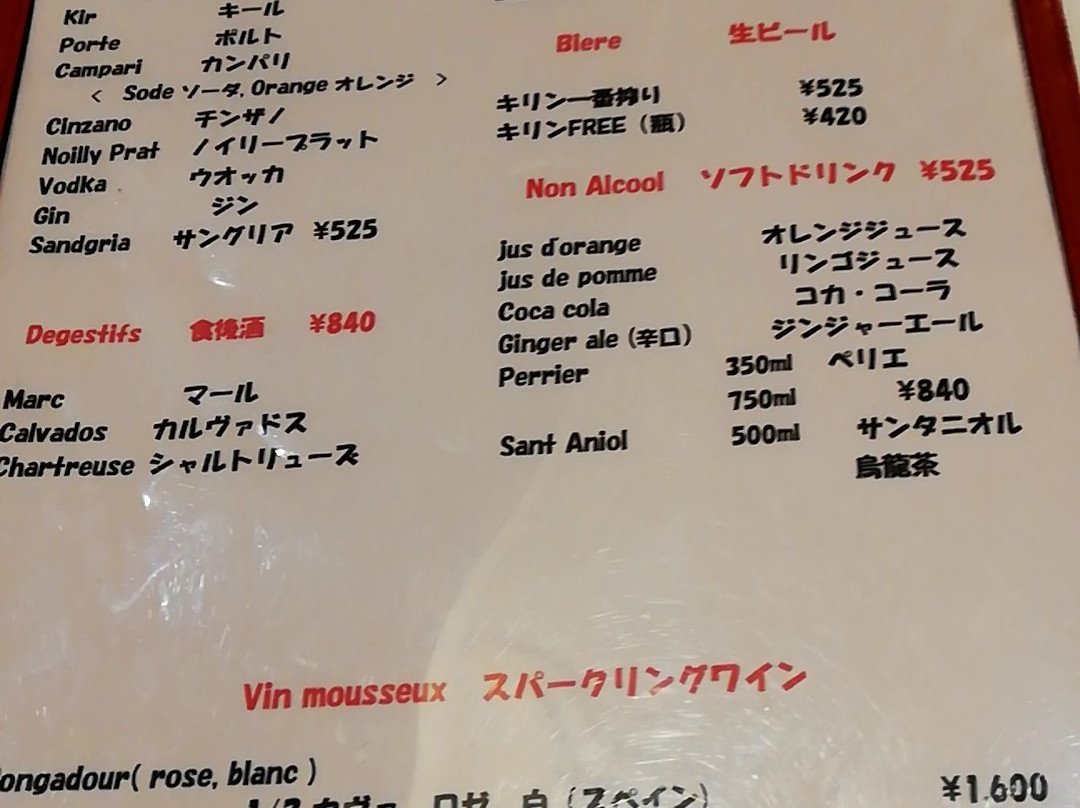 Kir キール
Porte ポルト
Campari カンパリ
< Sode ソーダ, Orange オレンジ >
Cinzano チンザノ
Noilly Prat ノイリープラット
Vodka ウオッカ
Gin ジン
Sandgria サングリア ¥525
Degestifs 食後酒 ¥840
Marc マール
Calvados カルヴァドス
Chartreuse シャルトリューズ
Biere 生ビール
キリン一番搾り ¥525
キリンFREE（瓶） ¥420
Non Alcool ソフトドリンク ¥525
jus d'orange オレンジジュース
jus de pomme リンゴジュース
Coca cola コカ・コーラ
Ginger ale (辛口) ジンジャーエール
Perrier 350ml ペリエ
750ml ¥840
Sant Aniol 500ml サンタニオル
烏龍茶
Vin mousseux スパークリングワイン
ongadour( rose, blanc )
1/2 カヴァ ロゼ 白（スペイン） ¥1.600